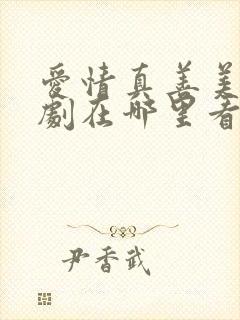 愛情真善美
劇在哪里看
尹香武